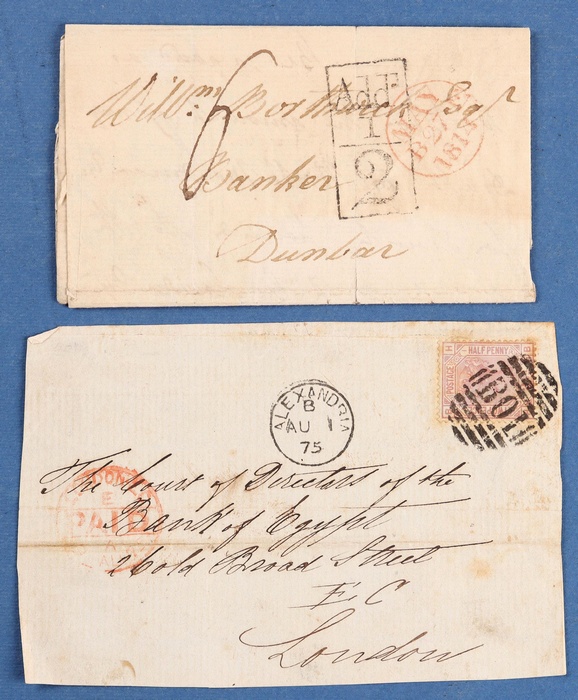 Willm: Borthwick Esqr
6
Banker
Dunbar
Addl
1
2
MAY
B
1818
H HALF PENNY B
POSTAGE
B01
ALEXANDRIA
B
AU 1
75
PAID
The Court of Directors of the
Bank of Egypt
26 old Broad Street
E. C
London